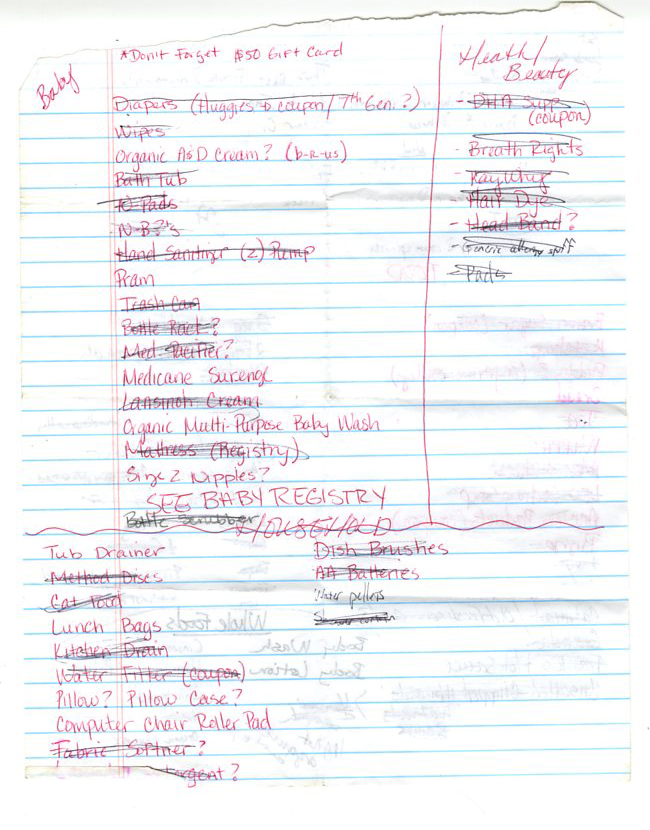 Baby
*Don't Forget $50 Gift Card
Diapers (Huggies + coupon / 7th Gen. ?)
Wipes
Organic A&D Cream? (b-r-us)
Bath Tub
Pads
N-B?'s
Hand Sanitizer (2) Pump
Pram
Trash Can
Bottle Rack?
Med. Pacifier?
Medicane Surenge
Lansinoh Cream
Organic Multi-Purpose Baby Wash
Mattress (Registry)
Size 2 Nipples?
SEE BABY REGISTRY
Bottle Scrubber
Heath/
Beauty
- DHA Supp
(coupon)
- Breath Rights
- Hair Dye
- Head Band?
- Generic allergy stuff
- Pads
HOUSEHOLD
Tub Drainer
Method Discs
Cat Food
Lunch Bags
Kitchen Drain
Water Filter (coupon)
Pillow? Pillow Case?
Computer Chair Roller Pad
Fabric Softner?
tergent?
Dish Brushes
AA Batteries
Water pellets
Shower curtain
Whole Foods
Body Wash
Body Lotion